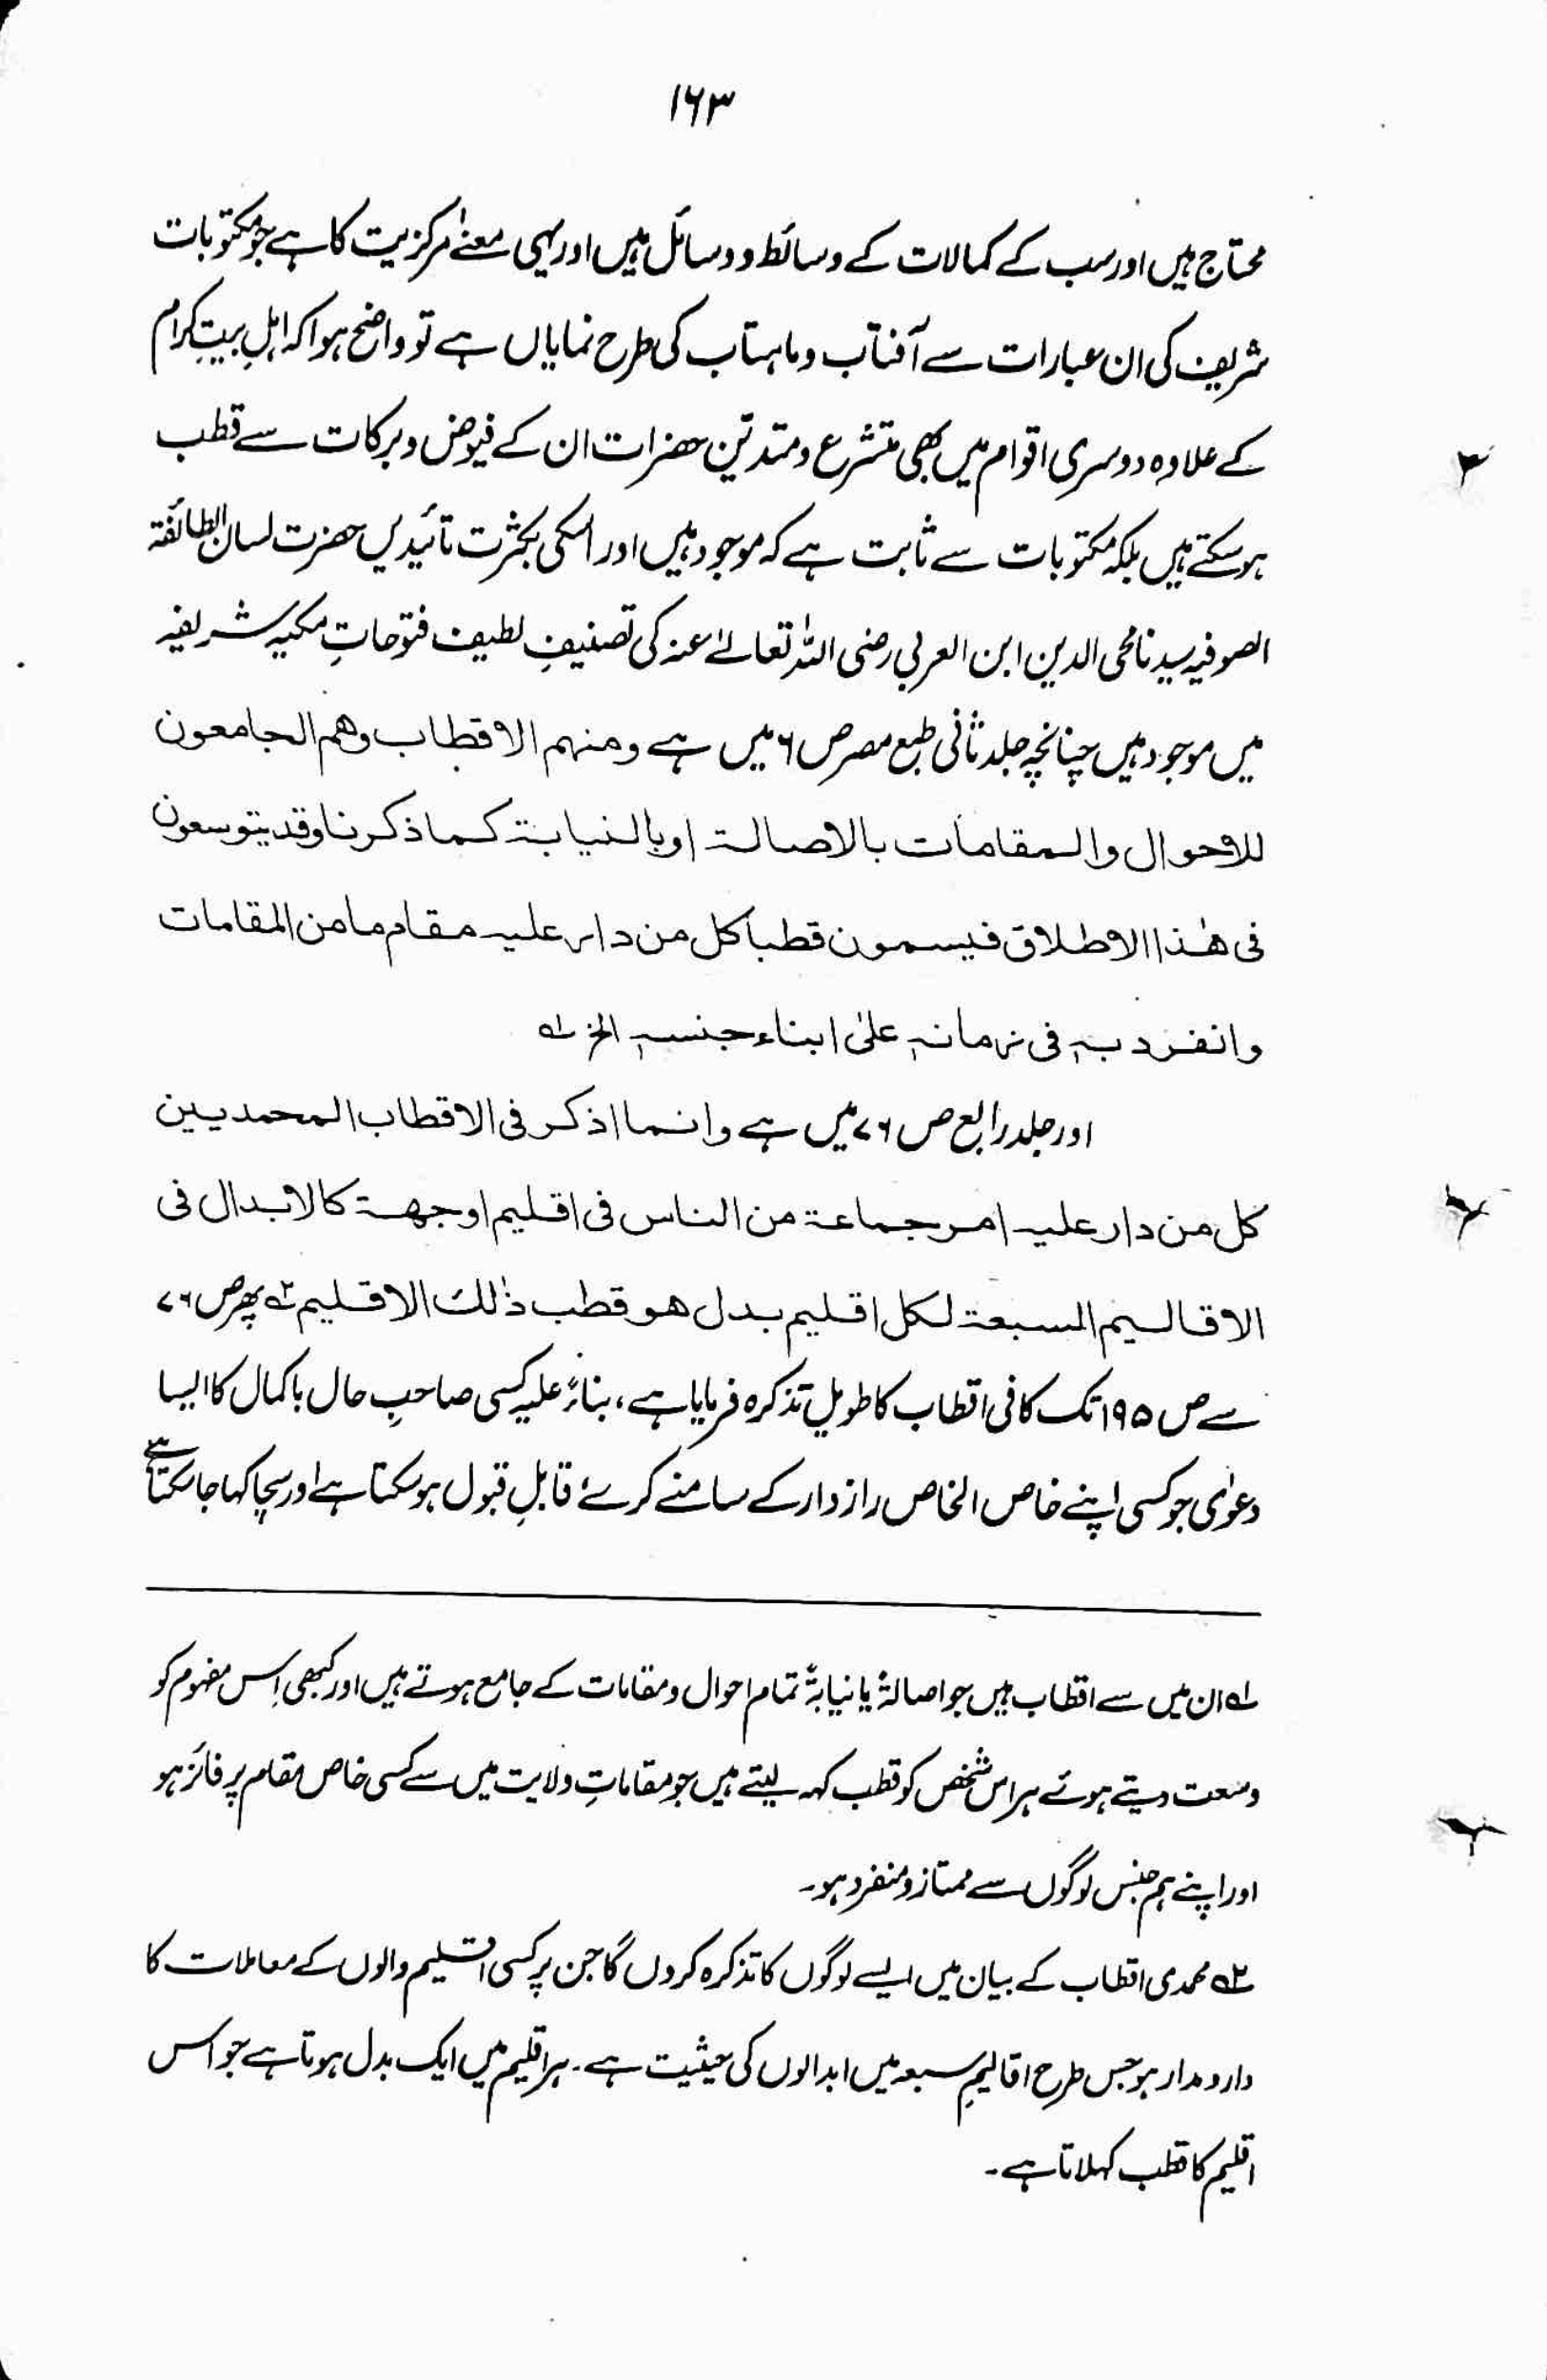 ۱۶۳
محتاج ہیں اور سب کے کمالات کے وسائط و وسائل ہیں اور یہی معنےٰ مرکزیت کا ہے جو مکتوبات
شریف کی ان عبارات سے آفتاب و ماہتاب کی طرح نمایاں ہے تو واضح ہوا کہ اہلِ بیتِ کرام
کے علاوہ دوسری اقوام میں بھی متشرع و متدین حضرات ان کے فیوض و برکات سے قطب
ہو سکتے ہیں بلکہ مکتوبات سے ثابت ہے کہ موجود ہیں اور اسکی بکثرت تائیدیں حضرت لسان الطائفۃ
الصوفیہ سیدنا محی الدین ابن العربی رضی اللہ تعالےٰ عنہ کی تصنیفِ لطیف فتوحاتِ مکیہ شریفہ
میں موجود ہیں چنانچہ جلد ثانی طبع مصر ص ۶ میں ہے ومنہم الاقطاب وھم الجامعون
للاحوال والمقامات بالاصالۃ اوبالنیابۃ کما ذکرنا وقد یتوسعون
فی ھٰذا الاطلاق فیسمون قطباً کل من دار علیہ مقام ما من المقامات
وانفرد بہٖ فی زمانہٖ علیٰ ابناء جنسہٖ الخ لہ
اور جلد رابع ص ۷۶ میں ہے وانما اذکر فی الاقطاب المحمدیین
کل من دار علیہ امر جماعۃ من الناس فی اقلیم اوجھۃ کالابدال فی
الاقالیم السبعۃ لکل اقلیم بدل ھو قطب ذٰلک الاقلیم ۲ہ پھر ص ۷۶
سے ص ۱۹۵ تک کافی اقطاب کا طویل تذکرہ فرمایا ہے، بناءً علیہ کسی صاحبِ حال باکمال کا ایسا
دعوٰی جو کسی اپنے خاص الخاص رازدار کے سامنے کرے قابلِ قبول ہو سکتا ہے اور سچا کہا جا سکتا ہے
لہ ان میں سے اقطاب ہیں جو اصالۃً یا نیابۃً تمام احوال و مقامات کے جامع ہوتے ہیں اور کبھی اِس مفہوم کو
وسعت دیتے ہوئے ہر اس شخص کو قطب کہہ لیتے ہیں جو مقاماتِ ولایت میں سے کسی خاص مقام پر فائز ہو
اور اپنے ہم جنس لوگوں سے ممتاز و منفرد ہو۔
۲ہ محمدی اقطاب کے بیان میں ایسے لوگوں کا تذکرہ کروں گا جن پر کسی اقلیم والوں کے معاملات کا
دارومدار ہو جس طرح اقالیمِ سبعہ میں ابدالوں کی حیثیت ہے۔ ہر اقلیم میں ایک بدل ہوتا ہے جو اس
اقلیم کا قطب کہلاتا ہے۔